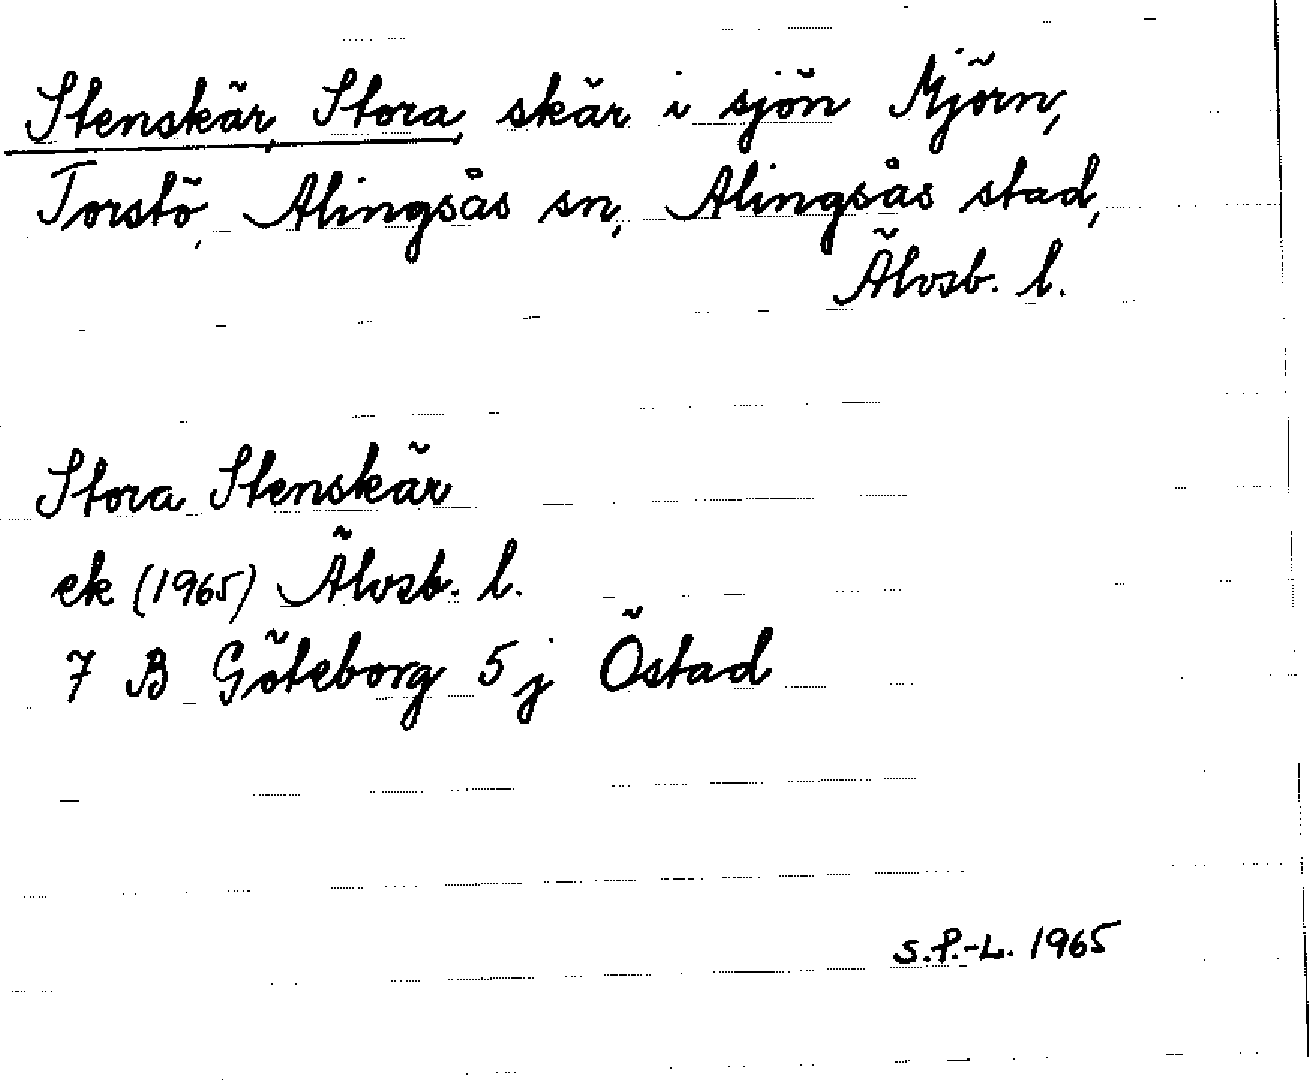 Stenskär, Stora, skär i sjön Mjörn,
Torstö, Alingsås sn, Alingsås stad,
Älvsb. l.
Stora Stenskär
ek (1965) Älvsb. l.
7 B Göteborg 5 j Östad
S.P.-L. 1965